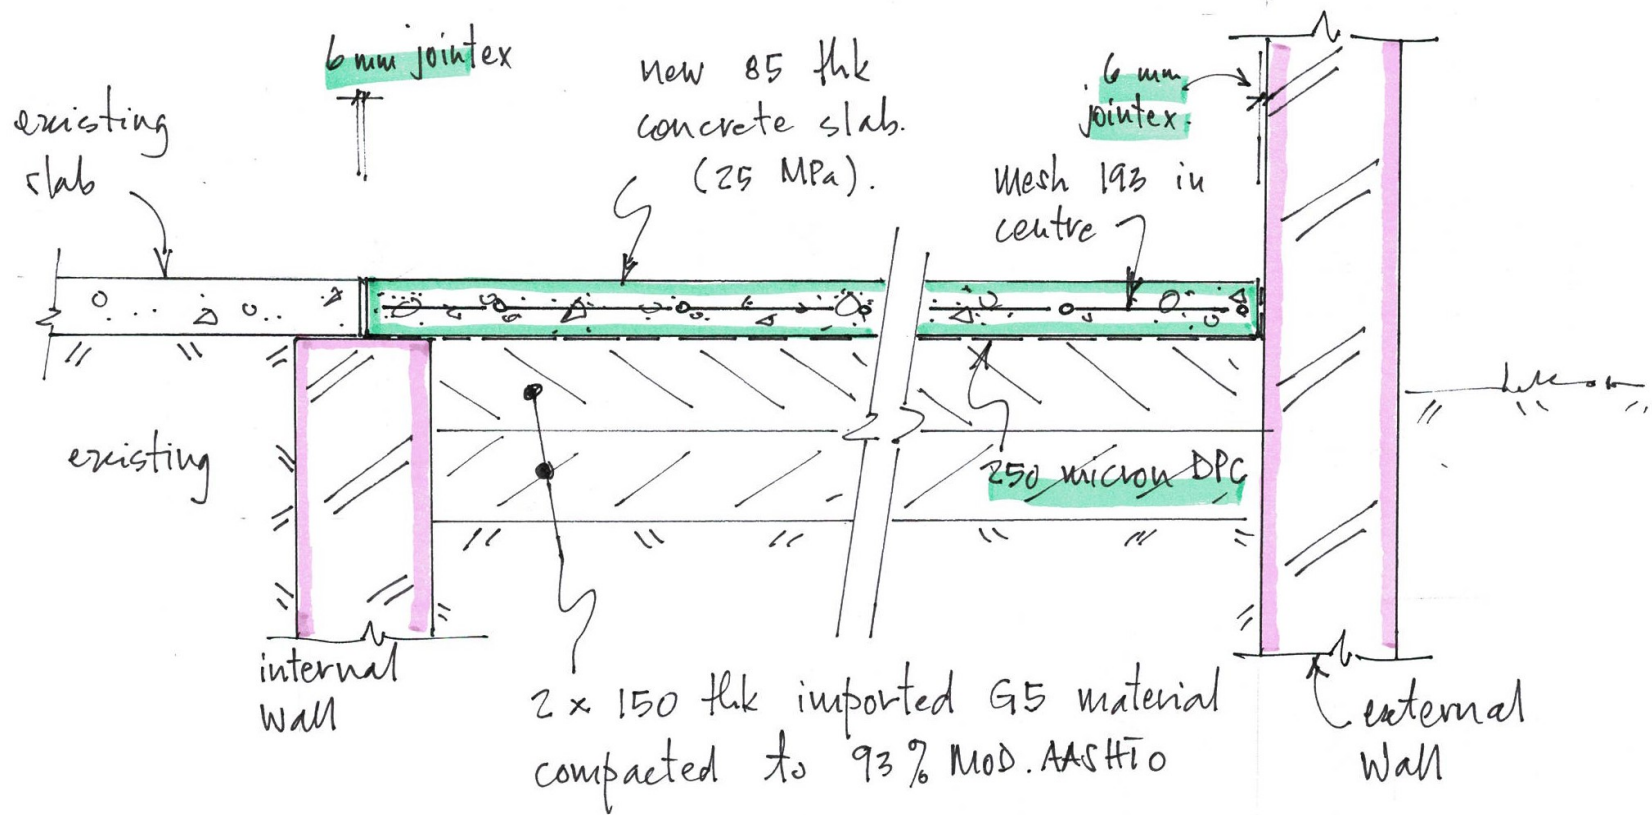 6mm jointex
existing
slab
new 85 thk
concrete slab.
(25 MPa).
6 mm
jointex.
mesh 193 in
centre
existing
250 micron DPC
internal
wall
2 x 150 thk imported G5 material
compacted to 93% MOD. AASHTO
external
wall